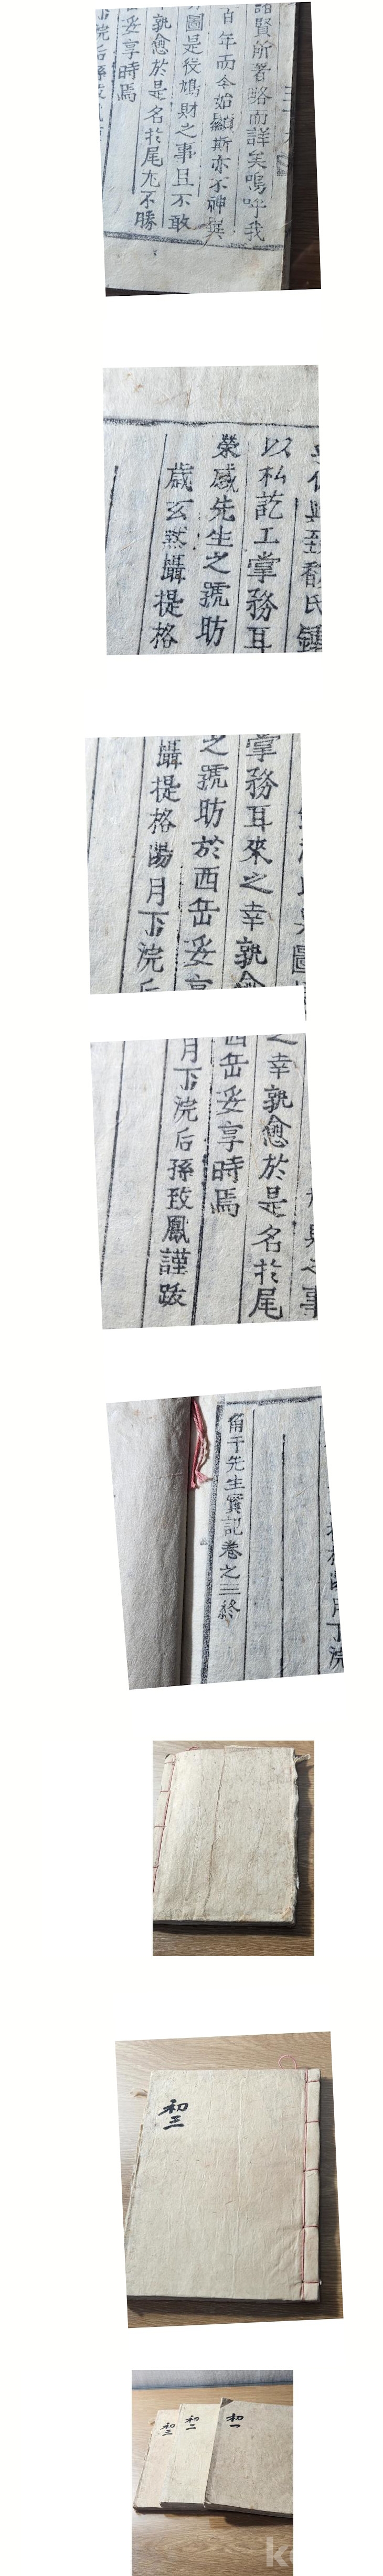 諸賢所著略而詳矣嗚呼我
百年而今始顯斯亦不神
圖是役鳩財之事且不敢
孰愈於是名於尾尤不勝
妥享時焉
浣后孫致
以私訖工掌務耳
榮感先生之號昉
歲玄黓攝提格
圖
掌務耳來之幸孰愈
之號昉於西岳妥享
攝提格陽月下浣后
之事
之幸孰愈於是名於尾
西岳妥享時焉
月下浣后孫致鳳謹跋
月下浣
角干先生實記卷之三終
初三
初一
初二
初三